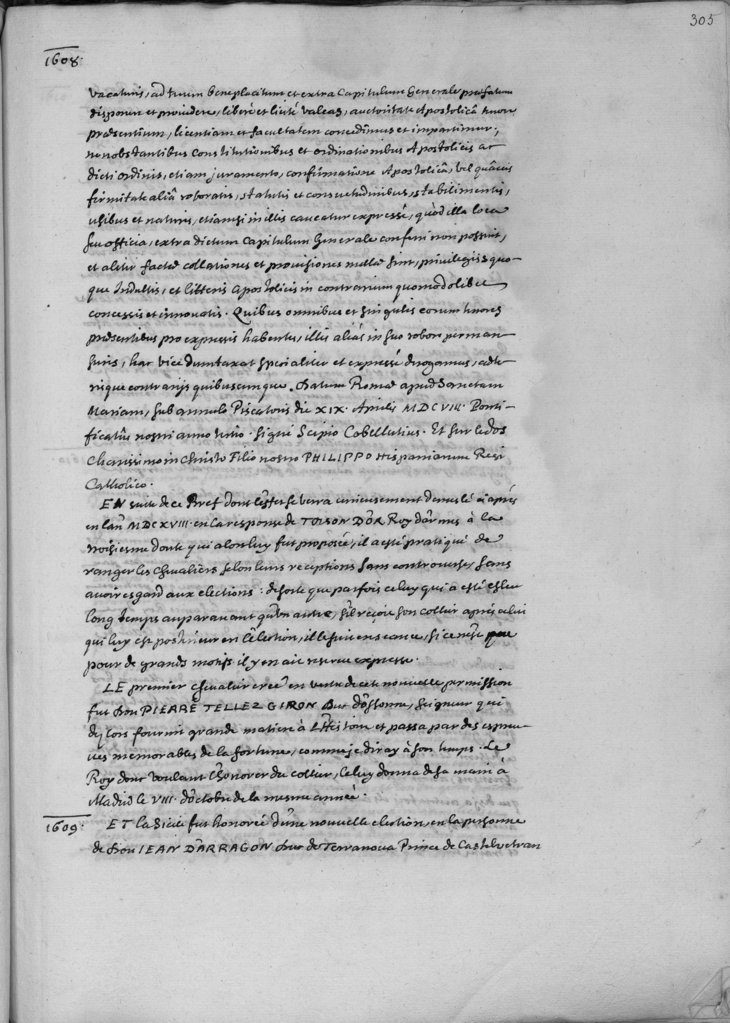 305
1608.
vacaturis, ad tuum beneplacitum et extra Capitulum Generale præfatum
disponere et providere, liberè et licitè valeas, auctoritate Apostolicâ tenore
præsentium, licentiam et facultatem concedimus et impartimur,
nonobstantibus Constitutionibus et ordinationibus Apostolicis ac
dicti ordinis, etiam juramento, confirmatione Apostolicâ, vel quâvis
firmitate aliâ roboratis, statutis et consuetudinibus, stabilimentis,
usibus et naturis, etiamsi in illis caveatur expressè, quòd illa loca
seu officia, extra dictum Capitulum Generale conferri non possint,
et aliter factæ collationes et provisiones nullæ sint, privilegiis quo-
que Indultis, et litteris Apostolicis in contrarium quomodolibet
concessis et innovatis. Quibus omnibus et singulis eorum tenores
præsentibus pro expressis habentes, illis aliàs in suo robore perman
suris, hac vice dumtaxat specialiter et expressè derogamus, cæte-
risque contrarijs quibuscumque. Datum Romæ apud Sanctam
Mariam, sub annulo Piscatoris die XIX. Aprilis MDCVIII. Ponti-
ficatûs nostri anno tertio. Signé Scipio Cobellutius. Et sur le dos
Charissimo in Christo Filio nostro PHILIPPO Hispaniarum Regi
Catholico.
EN suite de ce Bref dont l'effet se verra curieusement demeslé cy après
en l'an MDCXVIII. en la response de TOISON D'OR Roy d'armes à la
troisiesme doute qui alors luy fut proposée, il a esté pratiqué de
ranger les Chevaliers selon leurs receptions sans controverse, sans
avoir esgard aux elections: de sorte que par fois celuy qui a esté esleu
long temps auparavant qu'un autre, s'il reçoit son collier après celui
qui luy est posterieur en l'election, il le suit en seance, si ce n'est que
pour de grands motifs il y en ait reserve expresse.
LE premier chevalier creé en vertu de cete nouvelle permission
fut Don PIERRE TELLEZ GIRON Duc d'Ossone, Seigneur qui
dez lors fournit grande matiere à l'Histoire et passa par des espreu-
ves memorables de la fortune, comme je diray à son temps. Le
Roy dont voulant l'honorer du collier, le luy donna de sa main à
Madrid le VIII. d'octobre de la mesme année.
1609.
ET la Sicile fut honorée d'une nouvelle election, en la personne
de Don IEAN D'ARRAGON Duc de Terranova Prince de Castelvetran